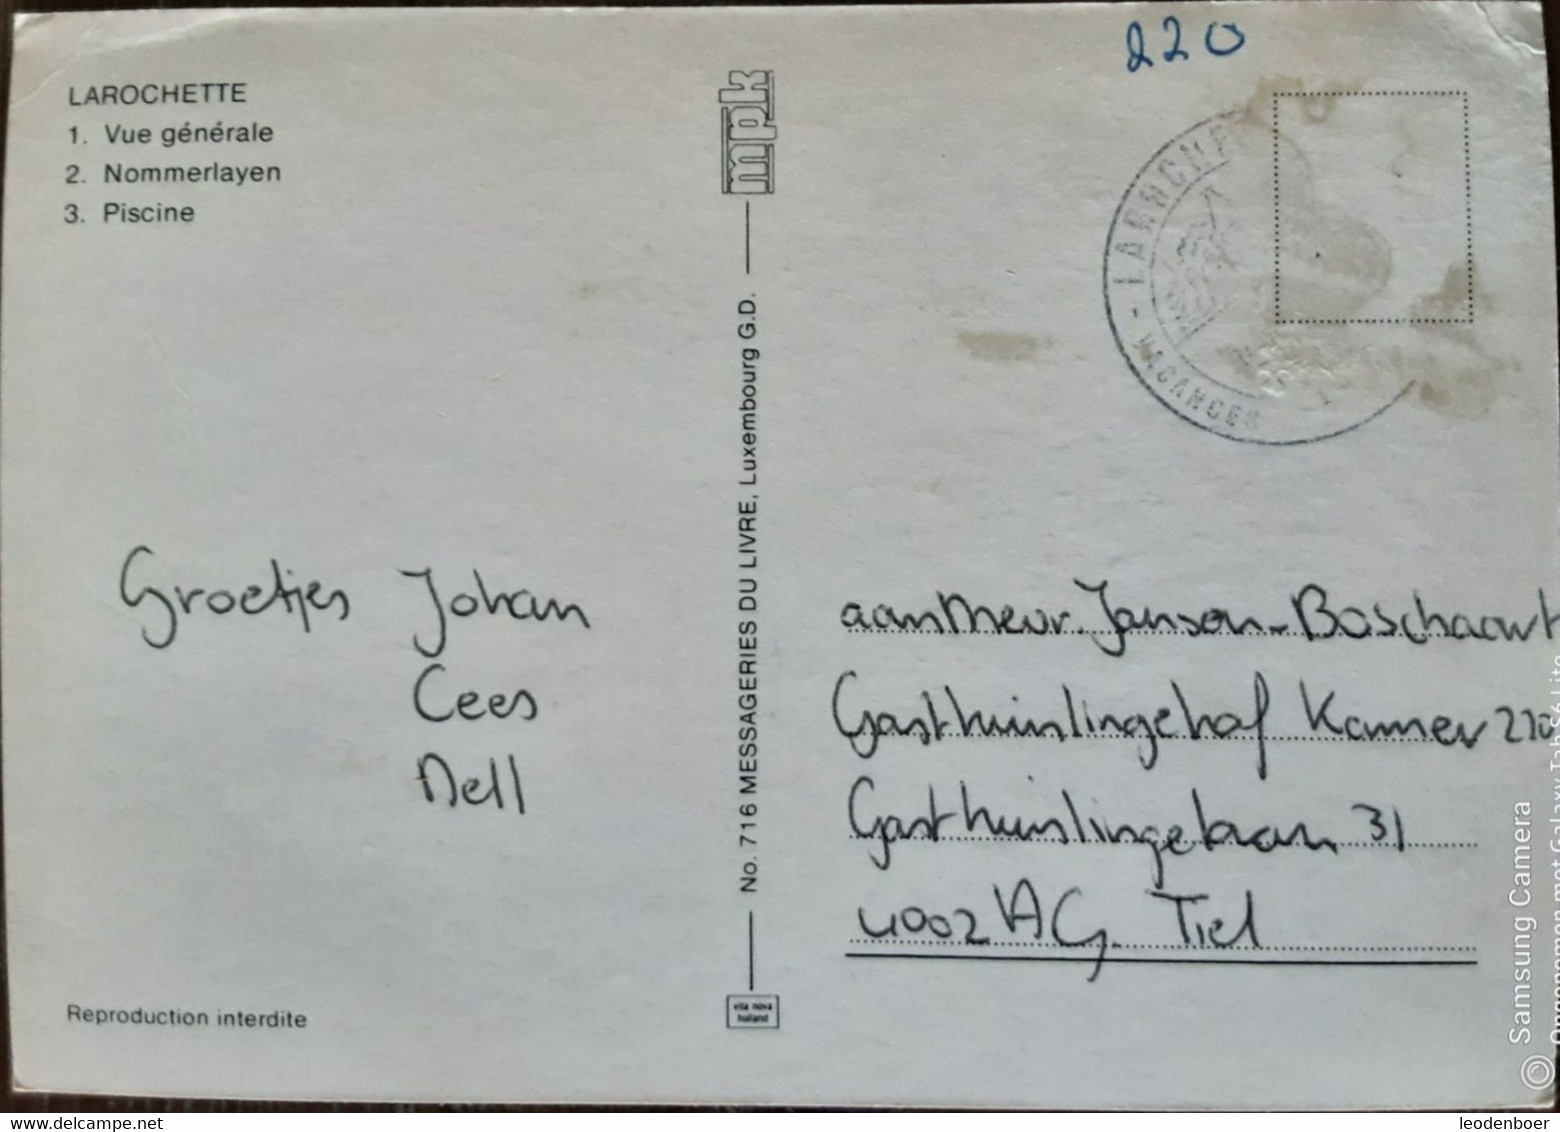 220
LAROCHETTE
1. Vue générale
2. Nommerlayen
3. Piscine
mpk
LAROCHE
- VACANCES
No. 716 MESSAGERIES DU LIVRE, Luxembourg G.D.
Groetjes Johan
Cees
Nell
aan Mevr. Janson-Boschaart
Gasthuislingehof Kamer 220
Gasthuislingelaan 31
4002 AG. Tiel
Reproduction interdite
vita nova
holland
© Samsung Camera
Opgenomen met Galaxy Tab S6 Lite
delcampe.net
leodenboer